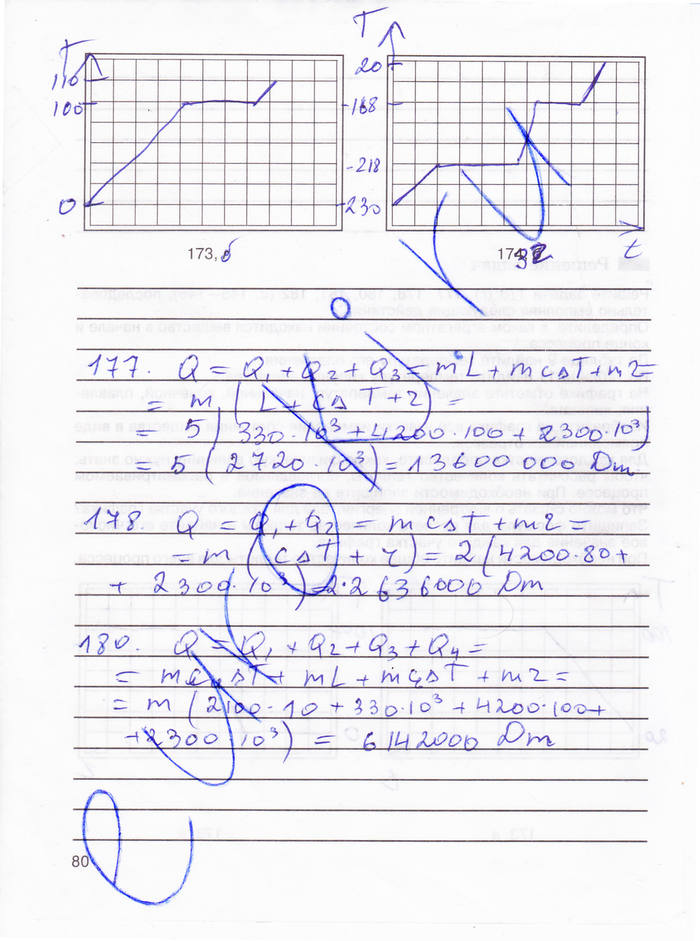 T T
110 20
100 -168
-218
0 230
t
173, б 174
177. Q = Q₁ + Q₂ + Q₃ = mL + mcΔT + mr =
= m ( L + cΔT + r ) =
= 5 ( 330·10³ + 4200·100 + 2300·10³ )
= 5 ( 2720·10³ ) = 13600000 Dm
178. Q = Q₁ + Q₂ = mcΔT + mr =
= m ( cΔT + r ) = 2 ( 4200·80 +
+ 2300·10³ ) = 2·2636000 Dm
180. Q = Q₁ + Q₂ + Q₃ + Q₄ =
= mc ΔT + mL + mc ΔT + mr =
= m ( 2100·10 + 330·10³ + 4200·100 +
+ 2300·10³ ) = 6142000 Dm
80